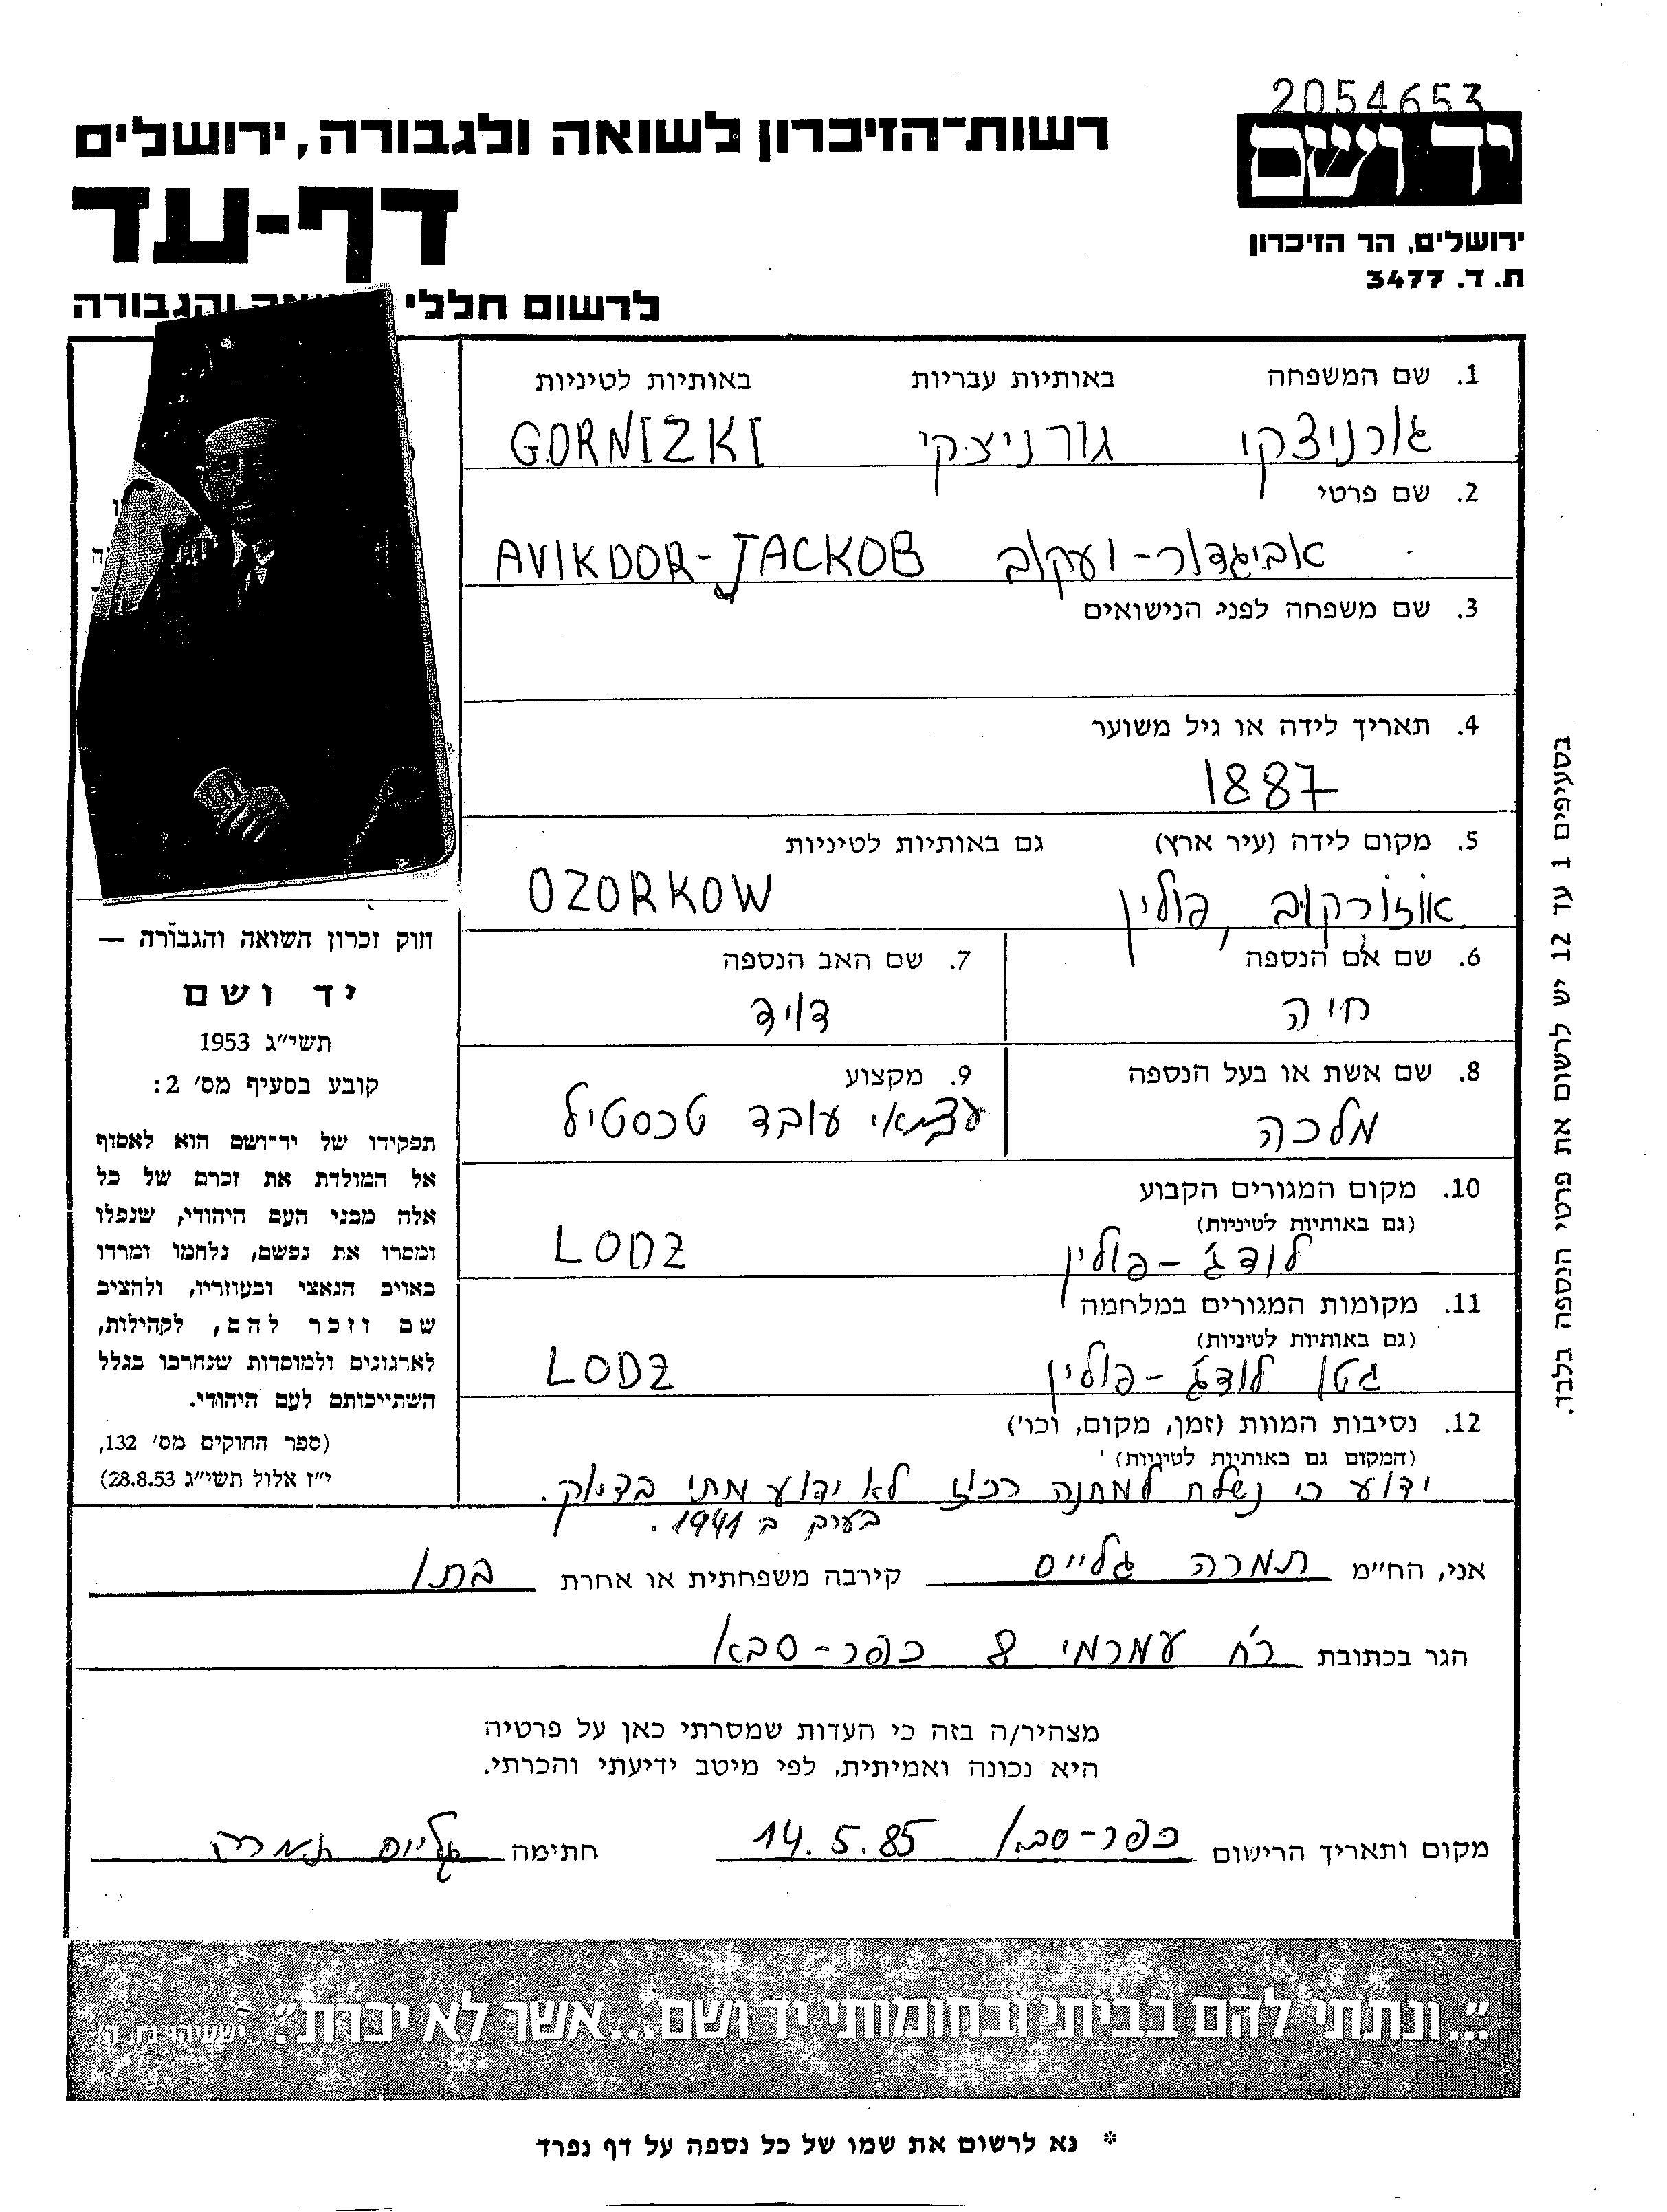 2054653
יד ושם
ירושלים, הר הזיכרון
ת.ד. 3477
רשות־הזיכרון לשואה ולגבורה, ירושלים
דף-עד
לרשום חללי והגבורה
1. שם המשפחה באותיות עבריות באותיות לטיניות
גורניצקי גורניצקי GORNIZKI
2. שם פרטי
אביגדור-יעקוב AVIKDOR-JACKOB
3. שם משפחה לפני הנישואים
4. תאריך לידה או גיל משוער
1887
5. מקום לידה (עיר ארץ) גם באותיות לטיניות
אוזורקוב, פולין OZORKOW
6. שם אם הנספה 7. שם האב הנספה
חיה דויד
8. שם אשת או בעל הנספה 9. מקצוע
מלכה עצמאי עובד טכסטיל
10. מקום המגורים הקבוע
(גם באותיות לטיניות)
לודג' -פולין LODZ
11. מקומות המגורים במלחמה
(גם באותיות לטיניות)
גטו לודג' -פולין LODZ
12. נסיבות המוות (זמן, מקום, וכו')
(המקום גם באותיות לטיניות)
ידוע כי נשלח למחנה רכוז לא ידוע מתי בדיוק.
בערך ב 1941.
חוק זכרון השואה והגבורה —
יד ושם
תשי״ג 1953
קובע בסעיף מס' 2:
תפקידו של יד־ושם הוא לאסוף
אל המולדת את זכרם של כל
אלה מבני העם היהודי, שנפלו
ומסרו את נפשם, נלחמו ומרדו
באויב הנאצי ובעוזריו, ולהציב
שם וזכר להם, לקהילות,
לארגונים ולמוסדות שנחרבו בגלל
השתייכותם לעם היהודי.
(ספר החוקים מס' 132,
י״ז אלול תשי״ג 28.8.53)
בסעיפים 1 עד 12 יש לרשום את פרטי הנספה בלבד.
אני, הח״מ תמרה גלייס קירבה משפחתית או אחרת בתו
הגר בכתובת רח' עמרמי 8 כפר-סבא
מצהיר/ה בזה כי העדות שמסרתי כאן על פרטיה
היא נכונה ואמיתית, לפי מיטב ידיעתי והכרתי.
מקום ותאריך הרישום כפר-סבא 14.5.85 חתימה גלייס תמרה
"...ונתתי להם בביתי ובחומותי יד ושם...אשר לא יכרת". ישעיהו נו, ה'
* נא לרשום את שמו של כל נספה על דף נפרד